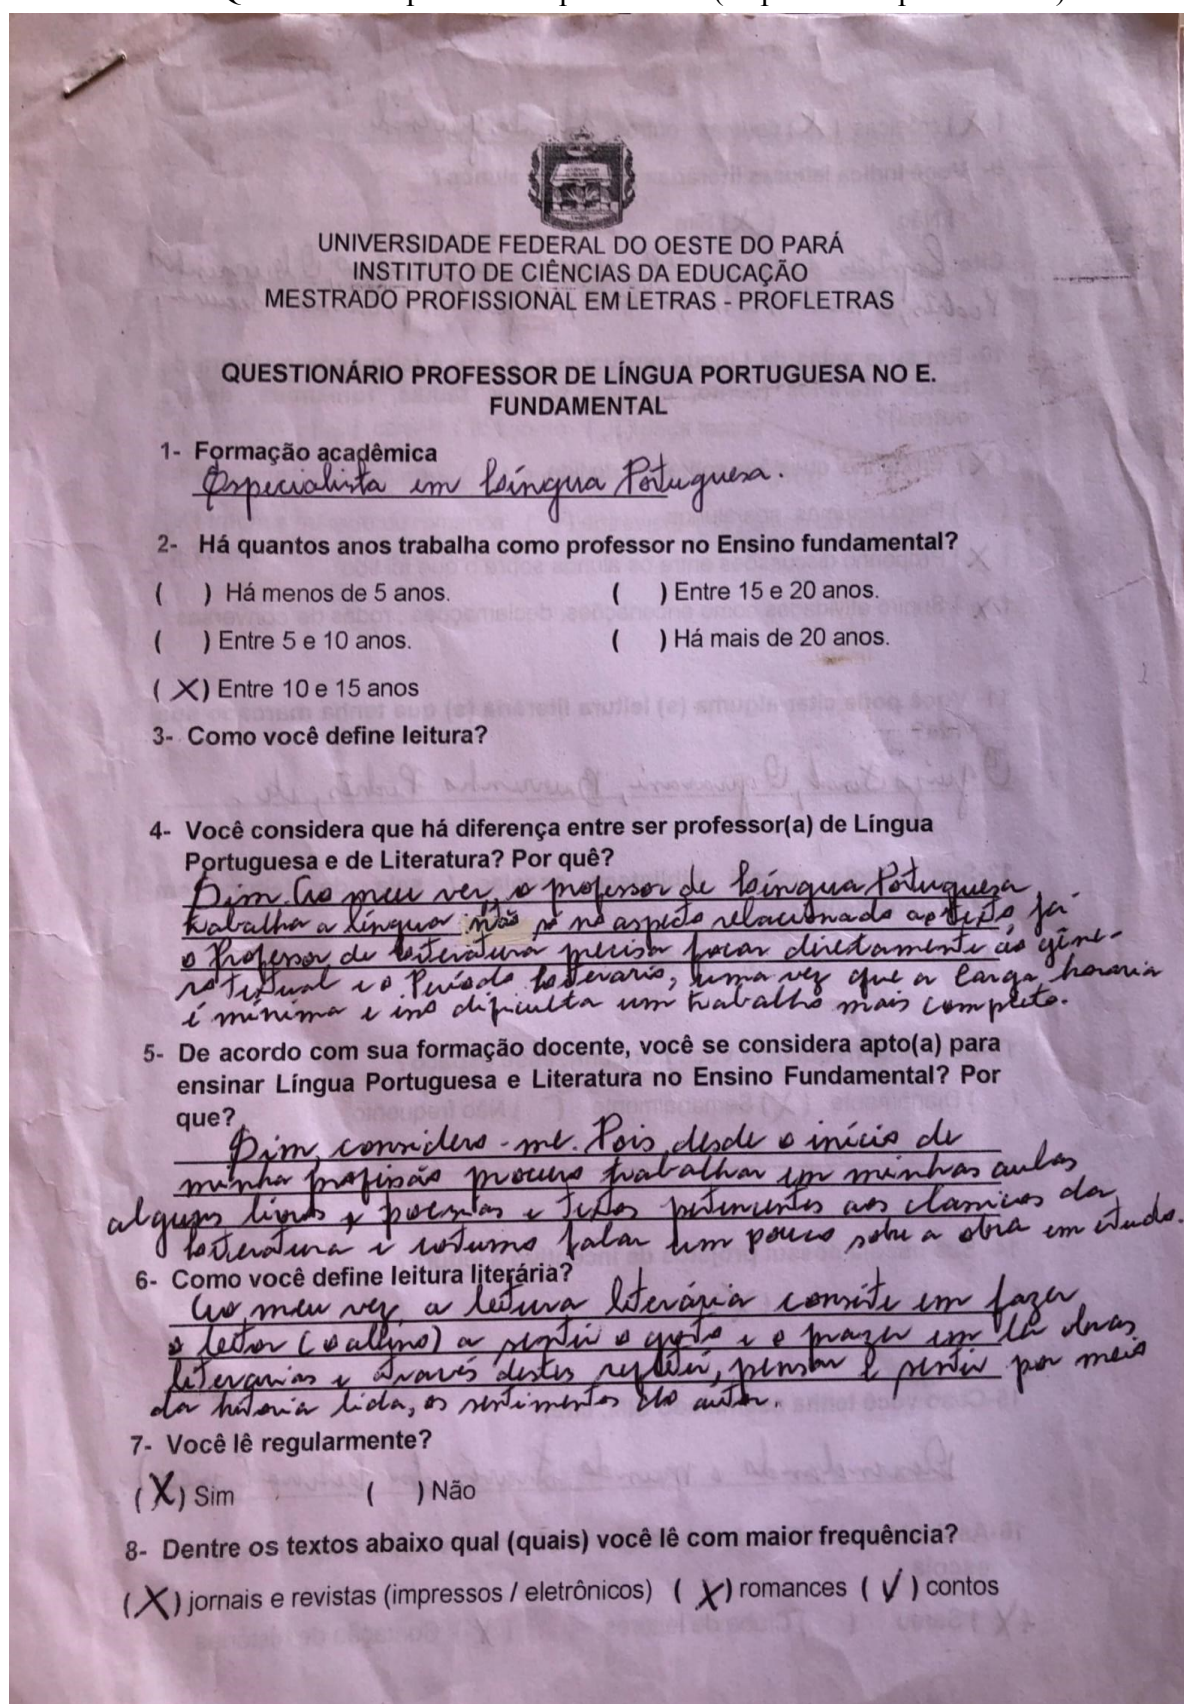 UNIVERSIDADE FEDERAL DO OESTE DO PARÁ
INSTITUTO DE CIÊNCIAS DA EDUCAÇÃO
MESTRADO PROFISSIONAL EM LETRAS - PROFLETRAS
QUESTIONÁRIO PROFESSOR DE LÍNGUA PORTUGUESA NO E.
FUNDAMENTAL
1- Formação acadêmica
Especialista em Língua Portuguesa.
2- Há quantos anos trabalha como professor no Ensino fundamental?
( ) Há menos de 5 anos. ( ) Entre 15 e 20 anos.
( ) Entre 5 e 10 anos. ( ) Há mais de 20 anos.
(X) Entre 10 e 15 anos
3- Como você define leitura?
4- Você considera que há diferença entre ser professor(a) de Língua
Portuguesa e de Literatura? Por quê?
Sim. Ao meu ver, o professor de Língua Portuguesa
trabalha a língua não só no aspecto relacionado ao texto já
o Professor de Literatura precisa focar diretamente ao gêne-
ro textual e o Período Literario, uma vez que a carga horaria
é mínima e isso dificulta um trabalho mais completo.
5- De acordo com sua formação docente, você se considera apto(a) para
ensinar Língua Portuguesa e Literatura no Ensino Fundamental? Por
que?
Sim, considero-me. Pois, desde o início de
minha profissão procuro trabalhar em minhas aulas
alguns livros, poesias e textos pertencentes aos classicos da
Literatura e costumo falar um pouco sobre a obra em estudo.
6- Como você define leitura literária?
Ao meu ver, a leitura literária consiste em fazer
o leitor (o aluno) a sentir o gosto e o prazer em ler obras
literarias e através destes refletir, pensar e sentir por meio
da historia lida, os sentimentos do autor.
7- Você lê regularmente?
(X) Sim ( ) Não
8- Dentre os textos abaixo qual (quais) você lê com maior frequência?
(X) jornais e revistas (impressos / eletrônicos) (X) romances (√) contos